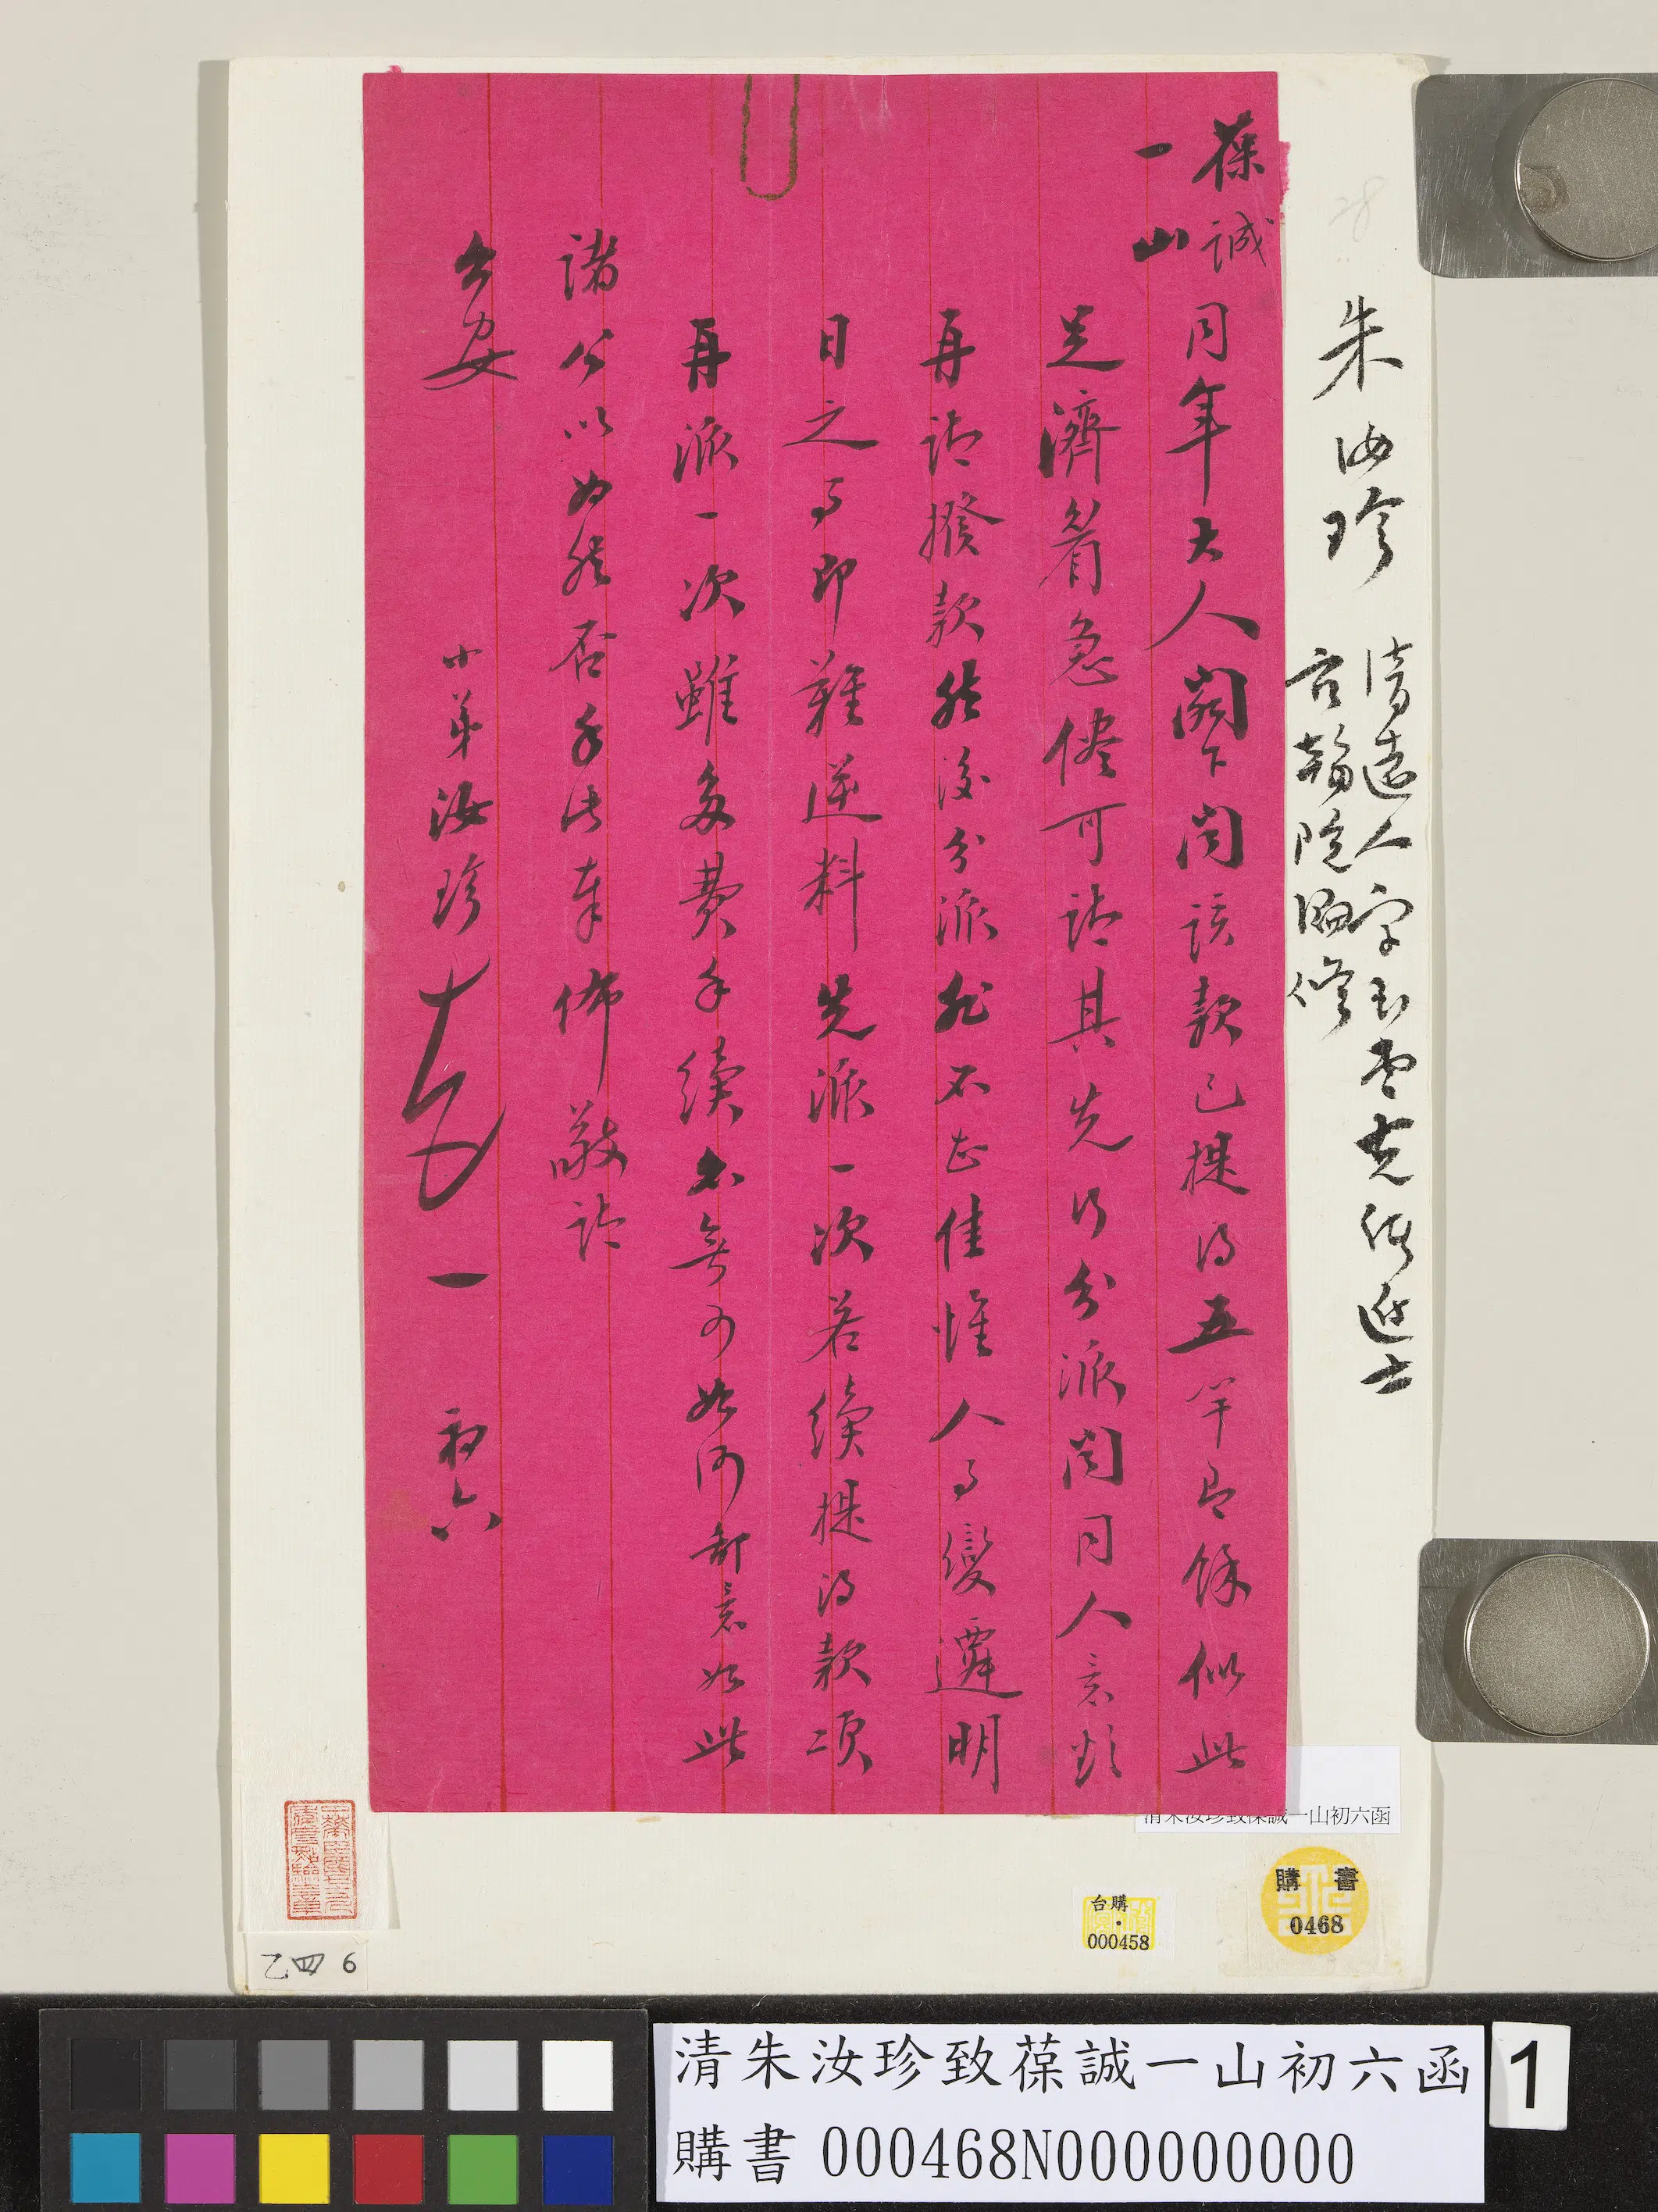 朱汝珍
清遠人字玉堂光緒進士
官翰院編修
28
葆誠
一山
同年大人閣下聞該款已提得五竿餘似此
足濟着急儘可請其先行分派聞同人意欲
再請撥款然後分派非不甚佳惟人事變遷明
日之事即難逆料先派一次若續提得款項
再派一次雖多費手續亦無可如何鄙意如此
諸公以為然否手此奉佈敬請
公安
小弟汝珍 一 初六
清朱汝珍致葆誠一山初六函
購書
0468
台購
000458
乙四 6
清朱汝珍致葆誠一山初六函
購書 000468N000000000
1